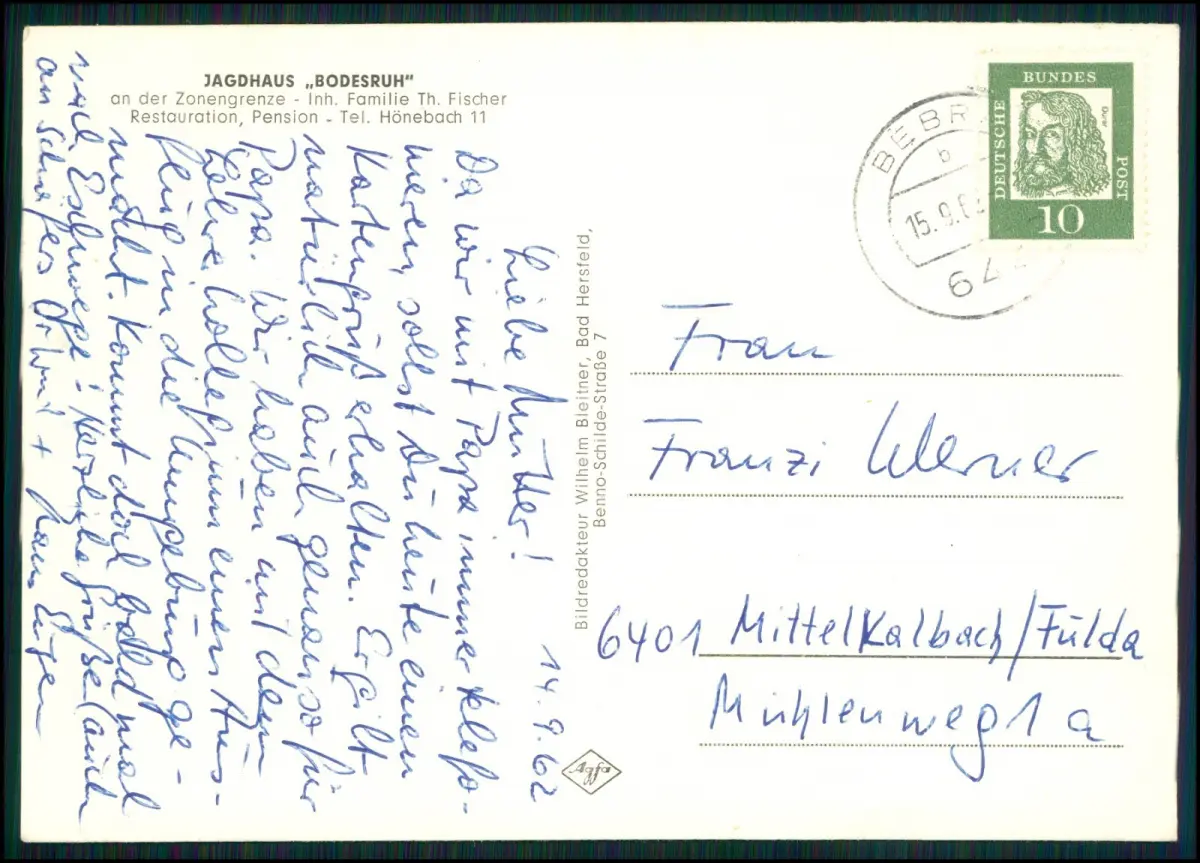 JAGDHAUS „BODESRUH"
an der Zonengrenze - Inh. Familie Th. Fischer
Restauration, Pension - Tel. Hönebach 11
14.9.62
Liebe Mutter!
Da wir mit Papa immer telefo-
nieren, sollst Du heute einen
Kartengruß erhalten. Er gilt
natürlich auch genauso für
Papa. Wir haben mit dem
Lehrerkolleg
flug in die Umgebung ge-
macht. Kommt doch bald mal
nach Eschwege! Herzliche Grüße (auch
an Schäfers + Hans Eugen
Bildredakteur Wilhelm Bleitner, Bad Hersfeld,
Benno-Schilde-Straße 7
Agfa
BEBR
b
15.9.6
64
DEUTSCHE BUNDES POST
Dürer
10
Frau
Franzi Werner
6401 Mittelkalbach/Fulda
Mühlenweg 1 a